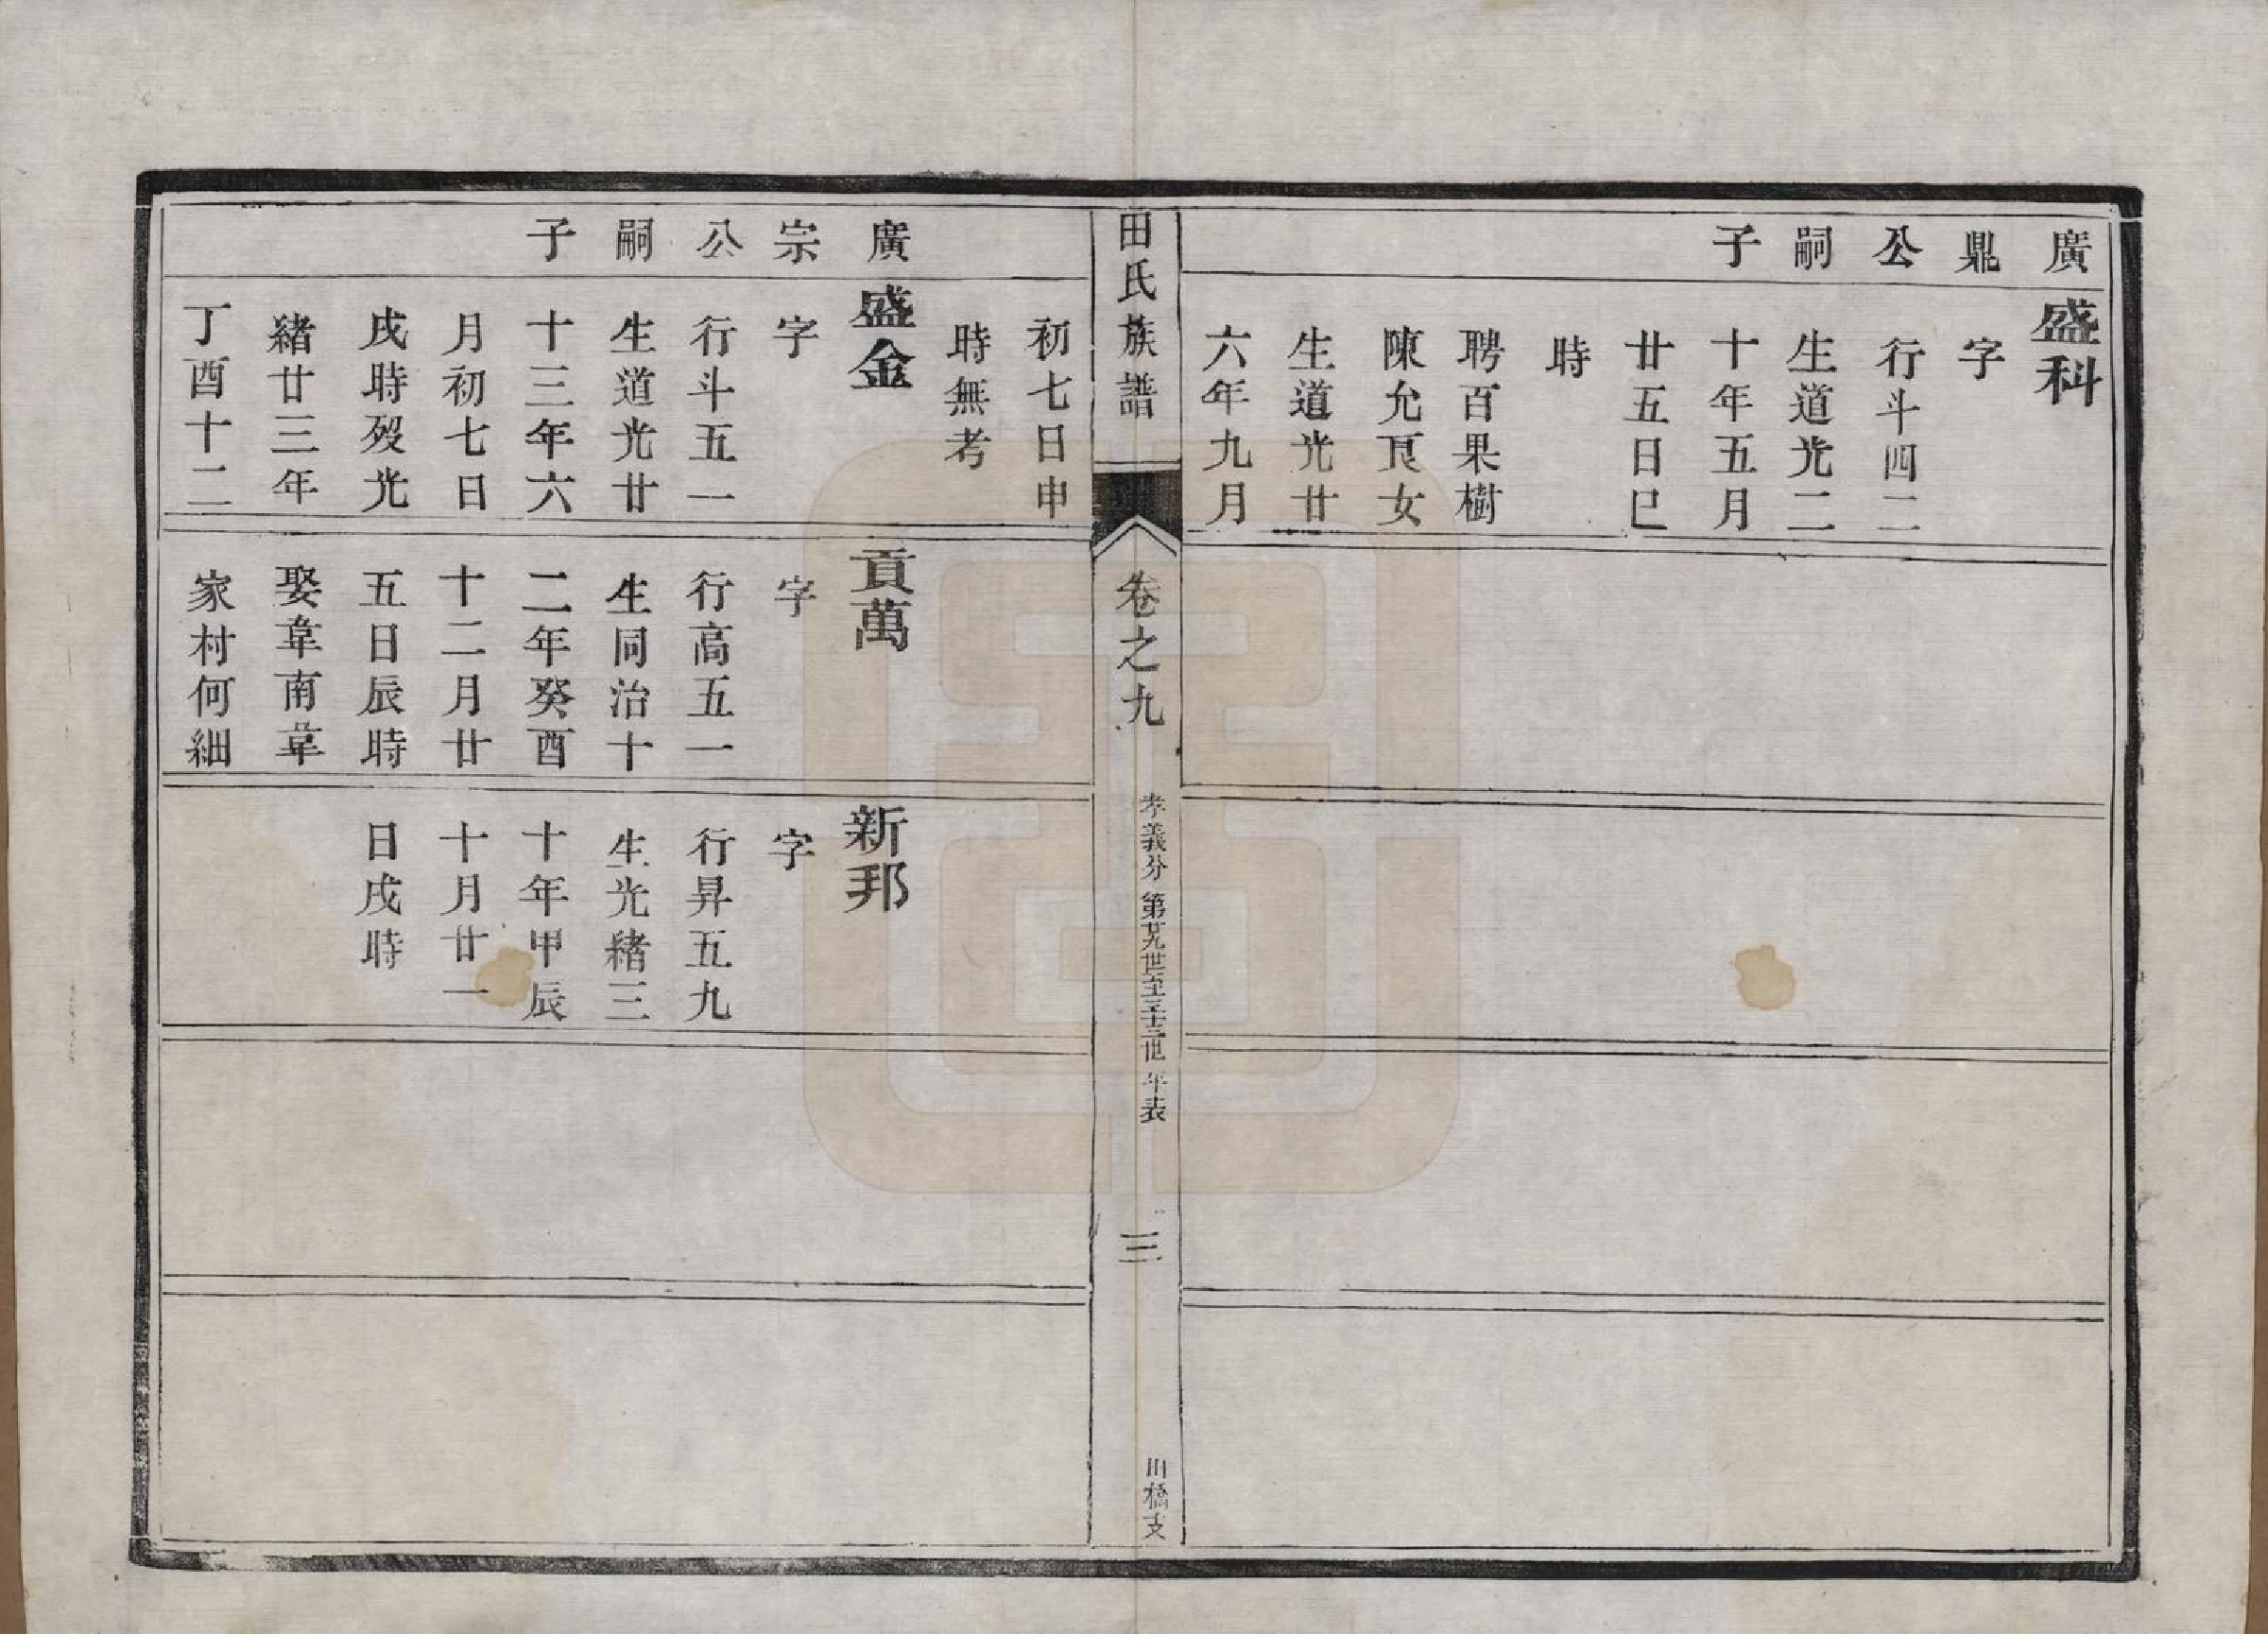 廣鼎公嗣子
盛科
字
行斗四二
生道光二
十年五月
廿五日巳
時
聘百果樹
陳允良女
生道光廿
六年九月
田氏族譜
卷之九
孝義分 第廿九世至三十三世 年表
三
川橋支
初七日申
時無考
廣宗公嗣子
盛金
字
行斗五一
生道光廿
十三年六
月初七日
戌時歿光
緒廿三年
丁酉十二
貢萬
字
行高五一
生同治十
二年癸酉
十二月廿
五日辰時
娶韋南韋
家村何細
新邦
字
行昇五九
生光緒三
十年甲辰
十月廿一
日戌時